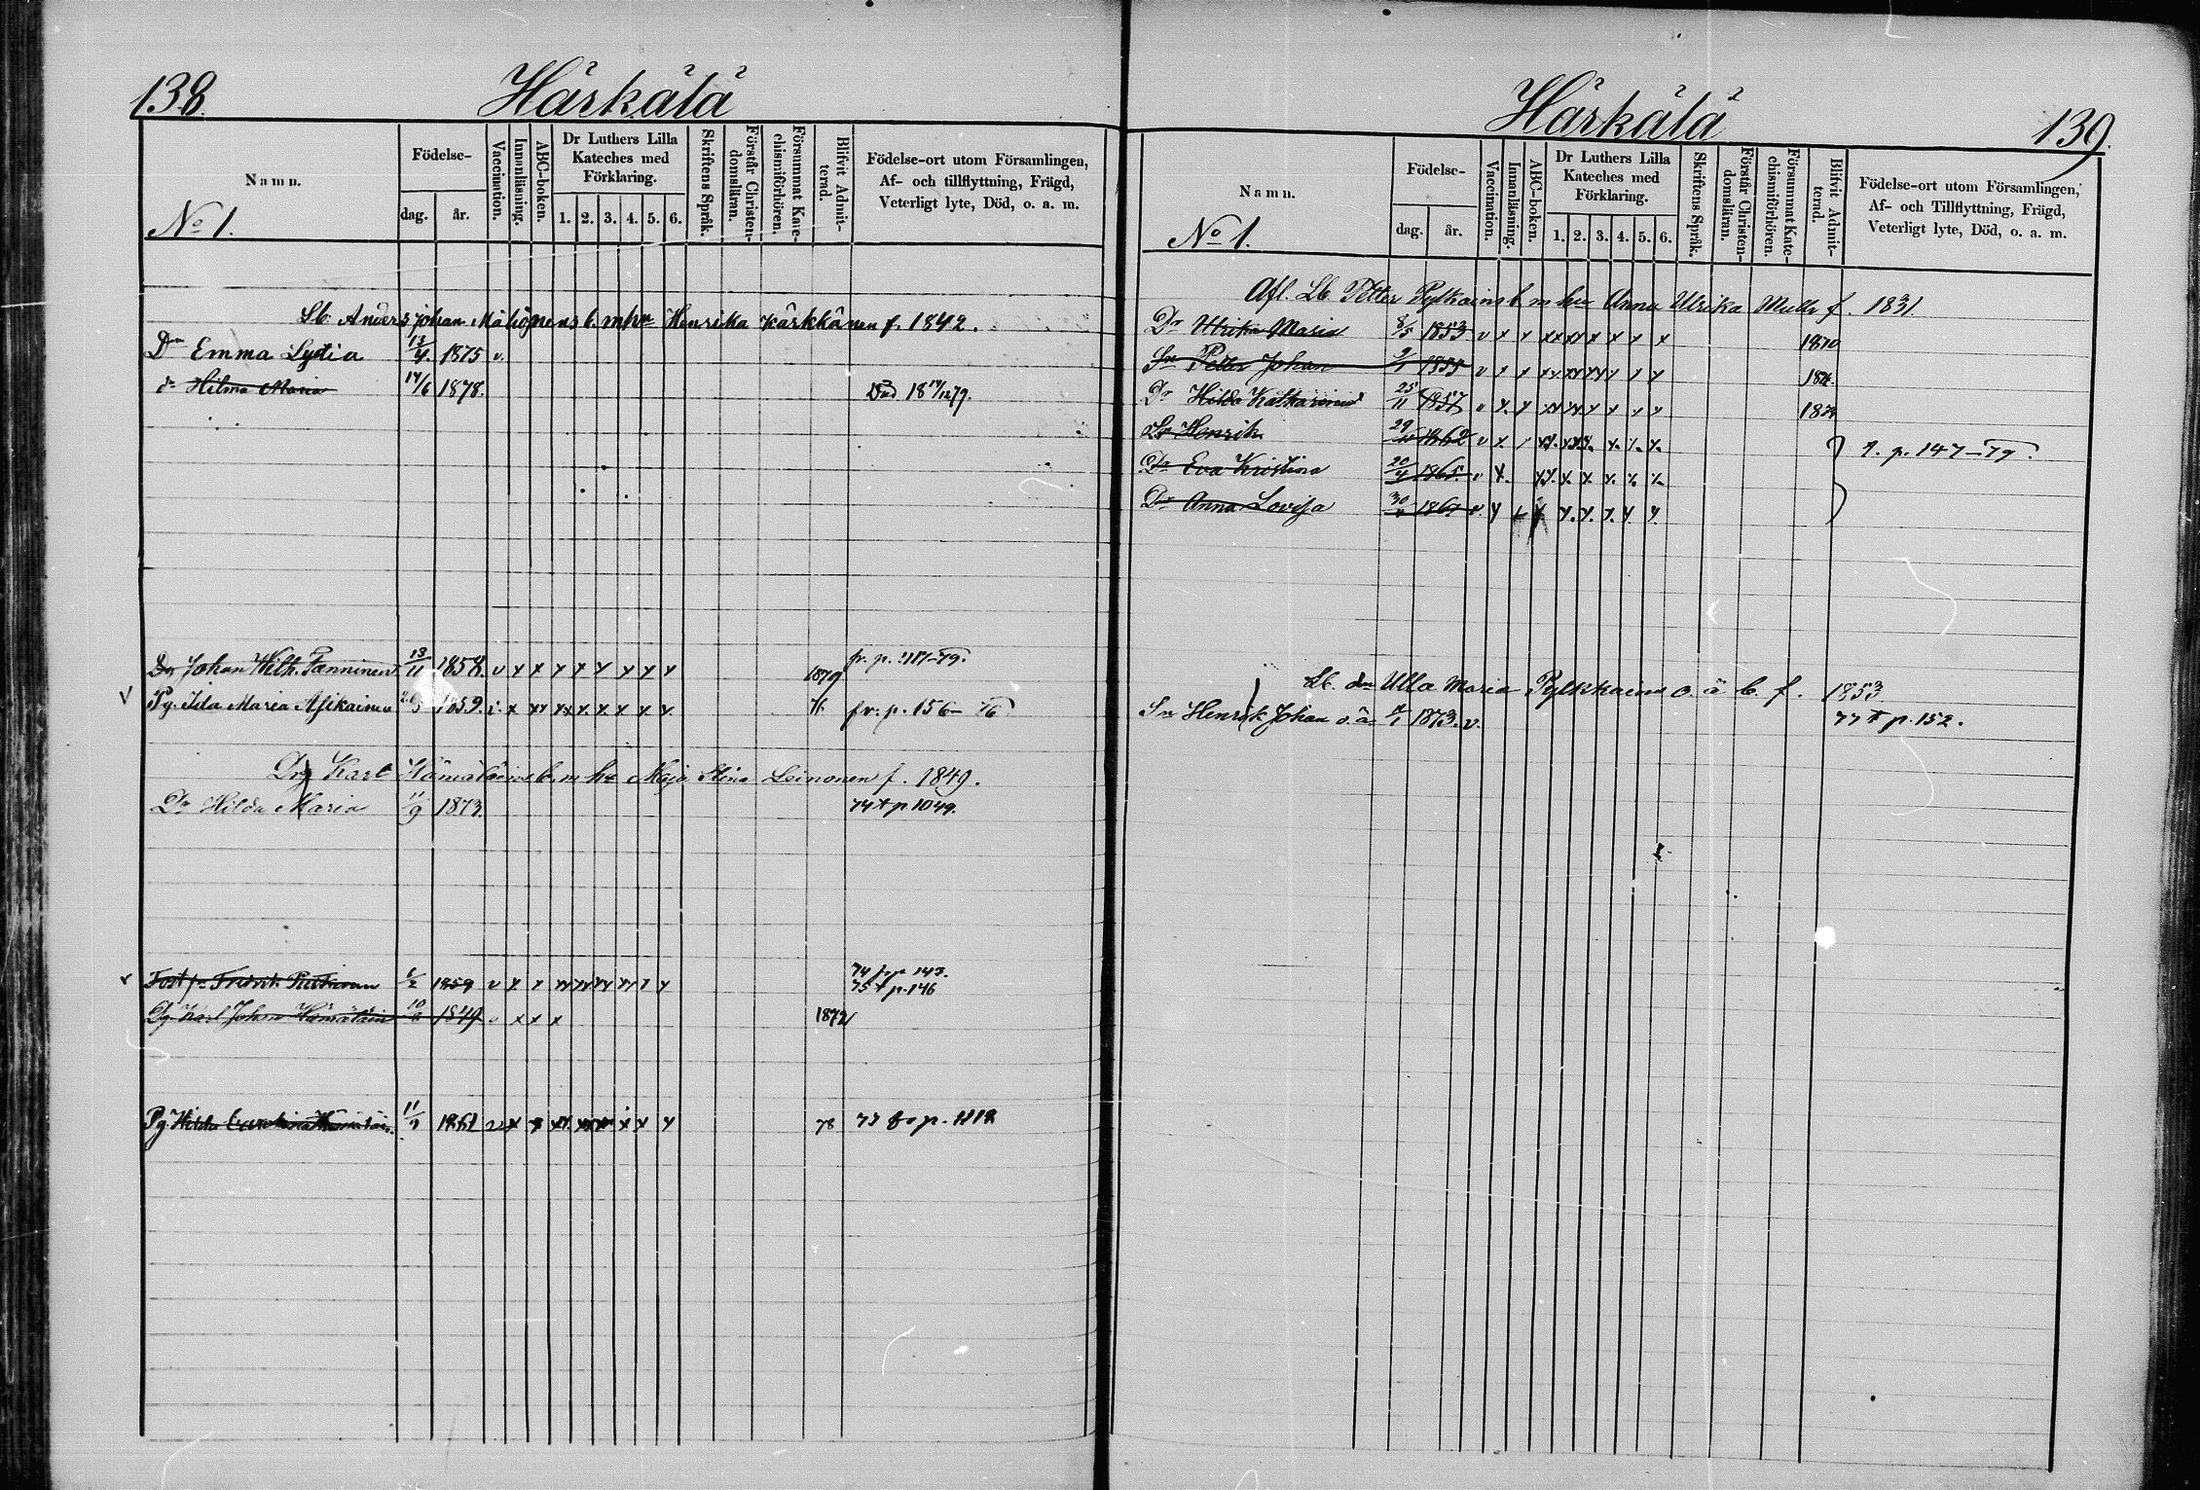 138.
Härkälä
Namn.
No 1.
Födelse-
dag.
år.
Vaccination.
Innanläsning.
ABC-boken.
Dr Luthers Lilla
Kateches med
Förklaring.
1. 2. 3. 4. 5. 6.
Skriftens Språk.
Förstår Christen-
domsläran.
Försummat Kate-
chismiförhören.
Blifvit Admit-
terad.
Födelse-ort utom Församlingen,
Af- och tillflyttning, Frägd,
Veterligt lyte, Död, o. a. m.
Lb. Anders Johan Mähönens b. m hu Henrika Kärkkänen f. 1842.
Dr Emma Lydia 13/4 1875 v.
dr Hilma Maria 14/6 1878. Död
Johan Wilh. Panninen 13/11 1858. v x x x x x x x x 1879
Pg. Ida Maria Asikainen 1859. fr. p. 156-76
Drg Karl Hämäläins b. m hu Maja Stina Leinonen f. 1849.
Dr Hilda Maria 11/9 1873. 74 t p 1049.
Fredrik 1/2 1859 74 fr p 143.
75 t p. 146
Dg. Karl Johan Hämäläin 1849 v x x x 1872
Pg Hilda 1861 78 77 fr p. 1118
Härkälä
139.
Namn.
No 1.
Födelse-
dag.
år.
Vaccination.
Innanläsning.
ABC-boken.
Dr Luthers Lilla
Kateches med
Förklaring.
1. 2. 3. 4. 5. 6.
Skriftens Språk.
Förstår Christen-
domsläran.
Försummat Kate-
chismiförhören.
Blifvit Admit-
terad.
Födelse-ort utom Församlingen,
Af- och Tillflyttning, Frägd,
Veterligt lyte, Död, o. a. m.
Afl. Lb. Petter Pylkäins b. m hu Anna Ulrika f. 1831
Dr Ulrika Maria 8/5 1853 v x x xx xx x x x x 1870
Sn Petter Johan 9/1 1855
Dr Hilda Katharina 25/11 1857
Sn Henrik 1862 t. p. 147-79.
Dr Eva Kristina 20/4 1865.
Dr Anna Lovisa 1867
Lb. dn Ulla Maria Pylkkäins o. ä b. f. 1853
Sn Henrik Johan o. ä 1873. v. 77 t p. 152.